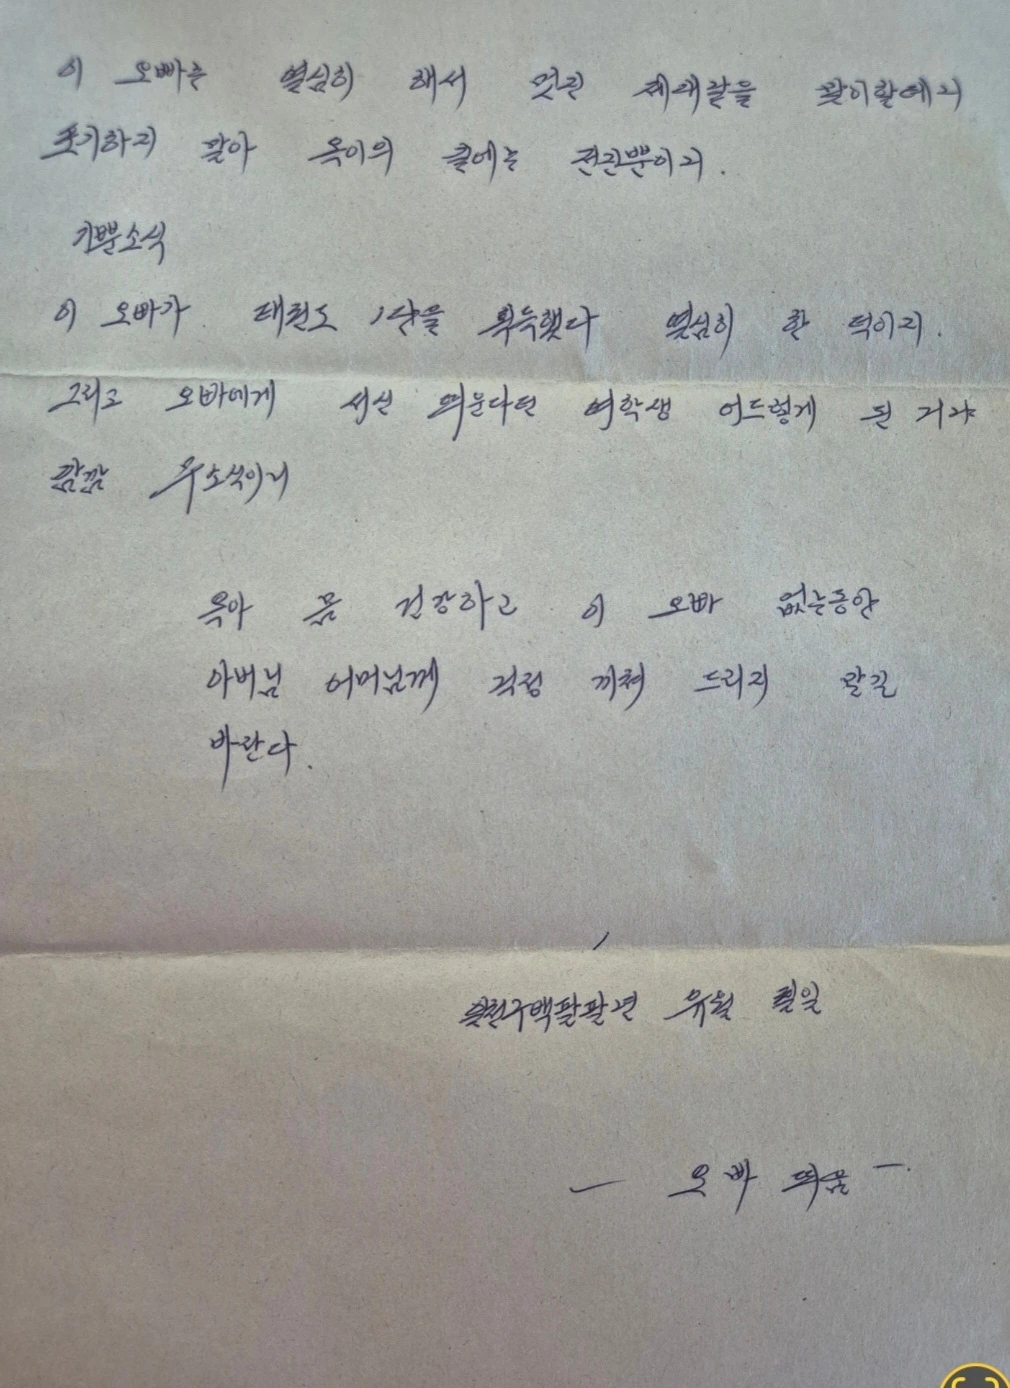 이 오빠는 열심히 해서 멋진 제대날을 맞이할예지
포기하지 말아 옥이의 앞에는 전진뿐이지.
기쁜소식
이 오빠가 태권도 1단을 획득했다 열심히 한 덕이지.
그리고 오빠에게 서신 띄운다던 여학생 어드렇게 된 거야
깜깜 무소식이니
옥아 몸 건강하고 이 오빠 없는동안
아버님 어머님께 걱정 끼쳐 드리지 말길
바란다.
일천구백팔팔년 유월 칠일
— 오빠 띄움 —.